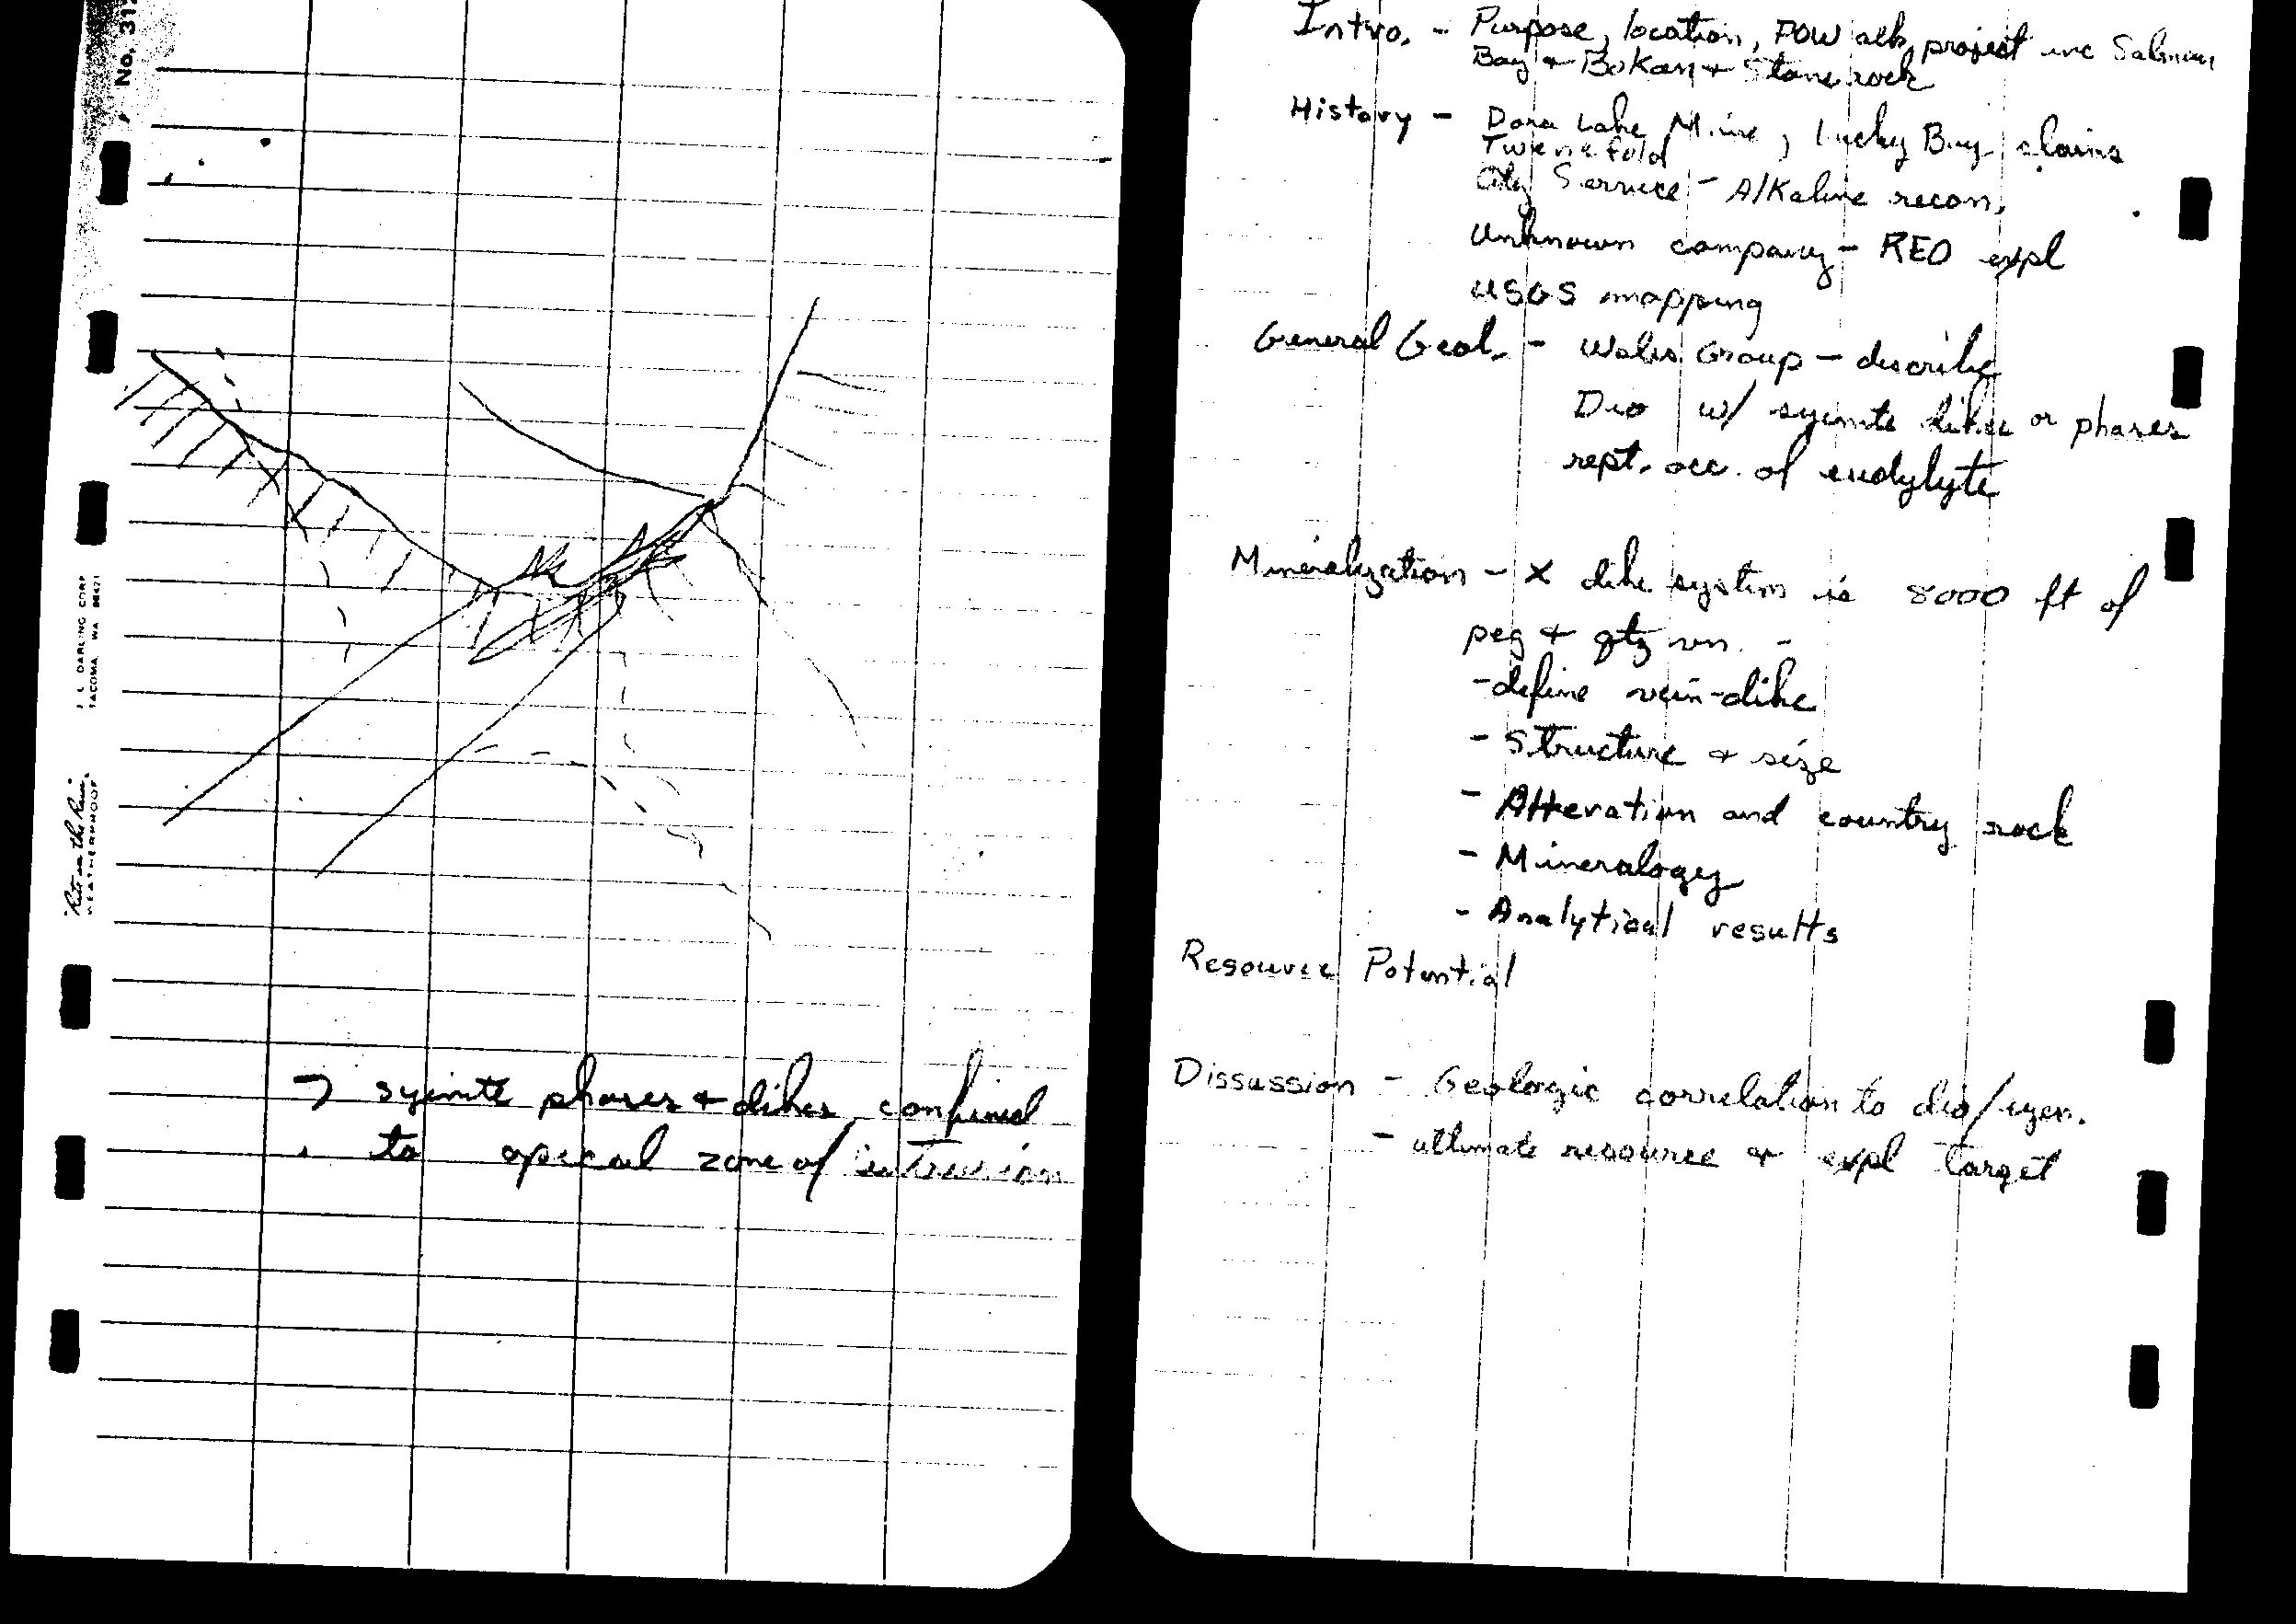 No. 31
J. L. DARLING CORP
TACOMA, WA 98421
"Rite in the Rain"
WEATHERPROOF
→ syenite phases + dikes confined
to apical zone of intrusion
Intro. - Purpose, location, POW alk. project inc Salmon
Bay + Bokan + Stone rock
History - Dora Lake Mine, Lucky Boy claims
Twenefold
City Service - Alkaline recon.
Unknown company - REO expl
USGS mapping
General Geol. - Wales Group - describe
Dio w/ syenite dikes or phases
rept. occ. of eudylyte
Mineralization - X dike system is 8000 ft of
peg + qtz vn. -
- define vein-dike
- Structure + size
- Alteration and country rock
- Mineralogy
- Analytical results
Resource Potential
Dissussion - Geologic correlation to dio/syen.
- ultimate resource + expl target